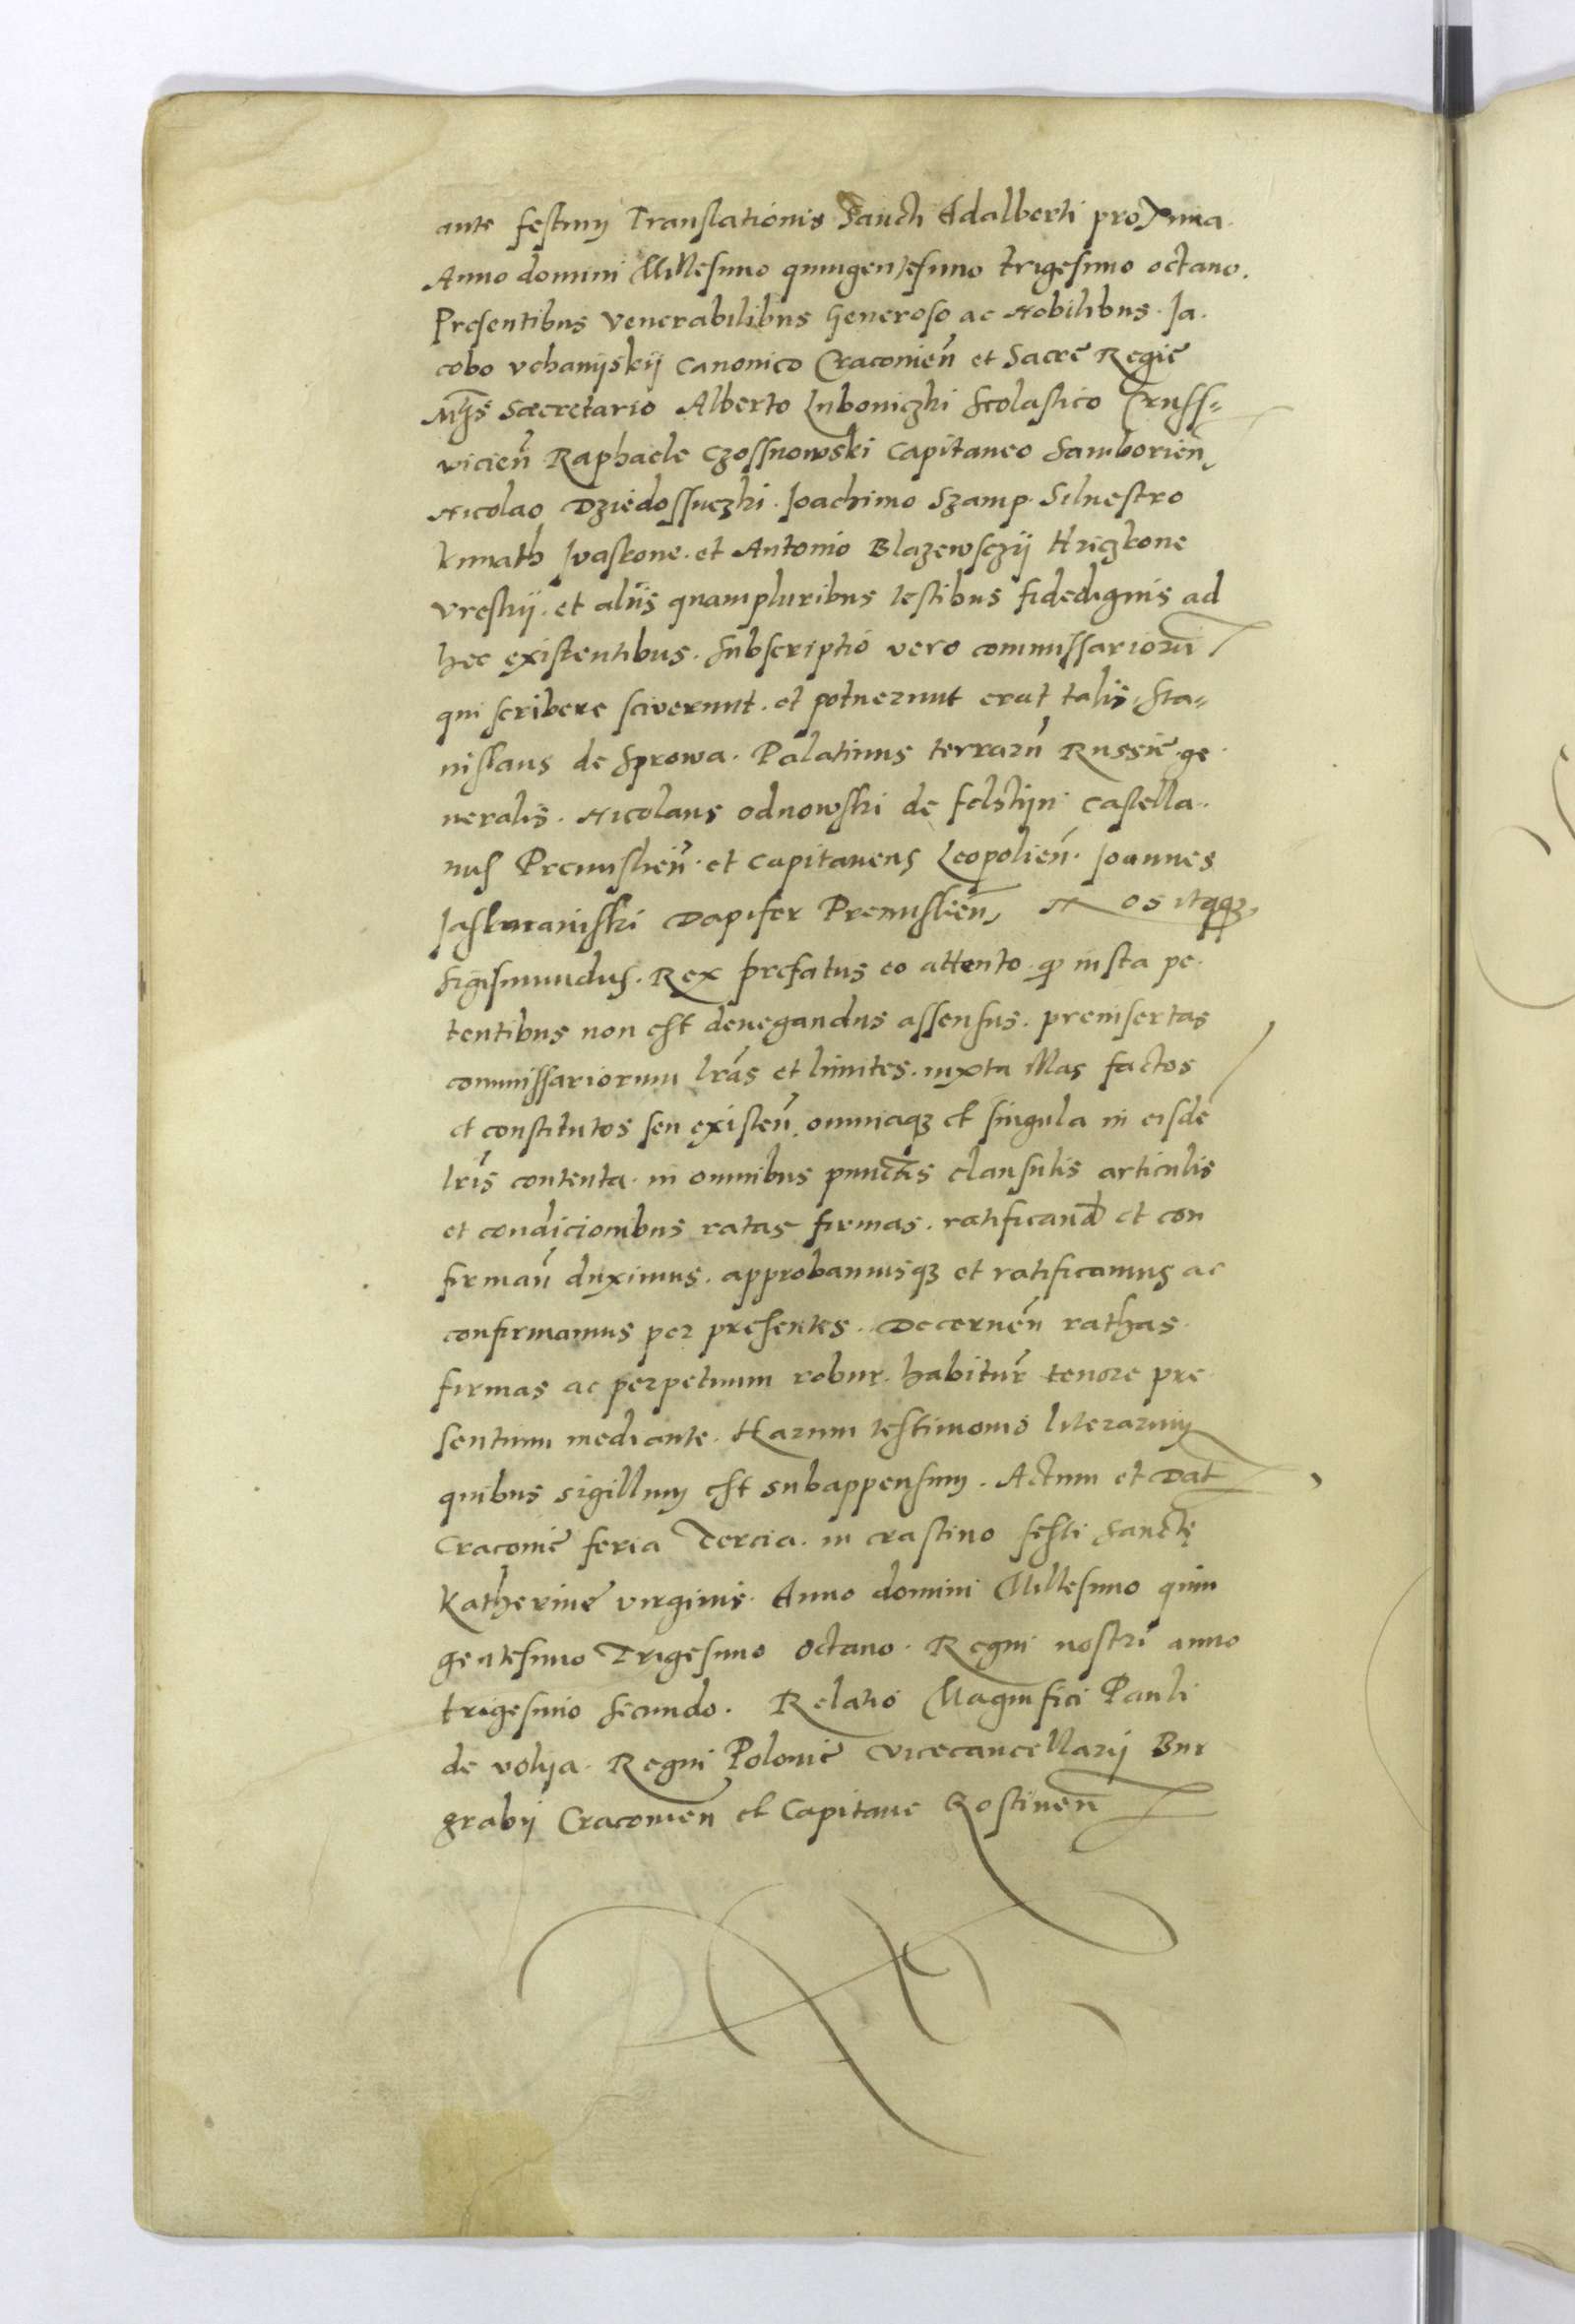 ante festum Translationis Sancti Adalberti proxima.
Anno domini Millesimo quingentesimo trigesimo octauo.
Presentibus Venerabilibus Generoso ac Nobilibus. Ja.
cobo vchanyskij Canonico Cracouien̄ et Sacre Regie
Mt̄is Secretario Alberto Luboniczki Scolastico Crussˮ
vicien̄ Raphaele Czossnowski Capitaneo Samborien̄
Nicolao Dziedossiczki. Joachimo Szamp. Siluestro
kmath Jvaskone. et Antonio Blazewsczij Hriczkone
vreskij. et alijs quampluribus testibus fidedignis ad
hec existentibus. Subscriptio vero commissariorū
qui scribere sciverunt. et potuerunt erat talis. Staˮ
nislaus de Sprowa. Palatinus terrarū Russie. ge.
neralis. Nicolaus Odnowski de felstijn Castella.
nus Premislien̄. et capitaneus Leopolien̄. Joannes
Jaskmaniski Dapifer Premislien̄, Nos itaqꝫ
Sigismundus. Rex prefatus eo attento ꝙ iusta pe.
tentibus non est denegandus assensus. preinsertas
commissariorum lrās et limites. iuxta illas factos
et constitutos seu existen̄. omniaqꝫ et singula in eisdē
lrīs contenta. in omnibus punctis clausulis articulis
et condicionibus ratas firmas. ratificand et con
firman̄ duximus. approbamusqꝫ et ratificamus ac
confirmamus per presentes. Decernen̄ rathas
firmas ac perpetuum robur. habitur̄ tenore pre
sentium mediante. Harum testimonio literarum
quibus sigillum est subappensum. Actum et Dat
Cracouie feria Tercia. in crastino festi Sanctę
Katherine virginis. Anno domini Millesimo quin
gentesimo Trigesimo octauo. Regni nostri anno
trigesimo secundo. Relatio Magnifici Pauli
de volija. Regni Polonie vicecancellarij Bur
grabij Cracouien̄ et Capitane Gostinen̄